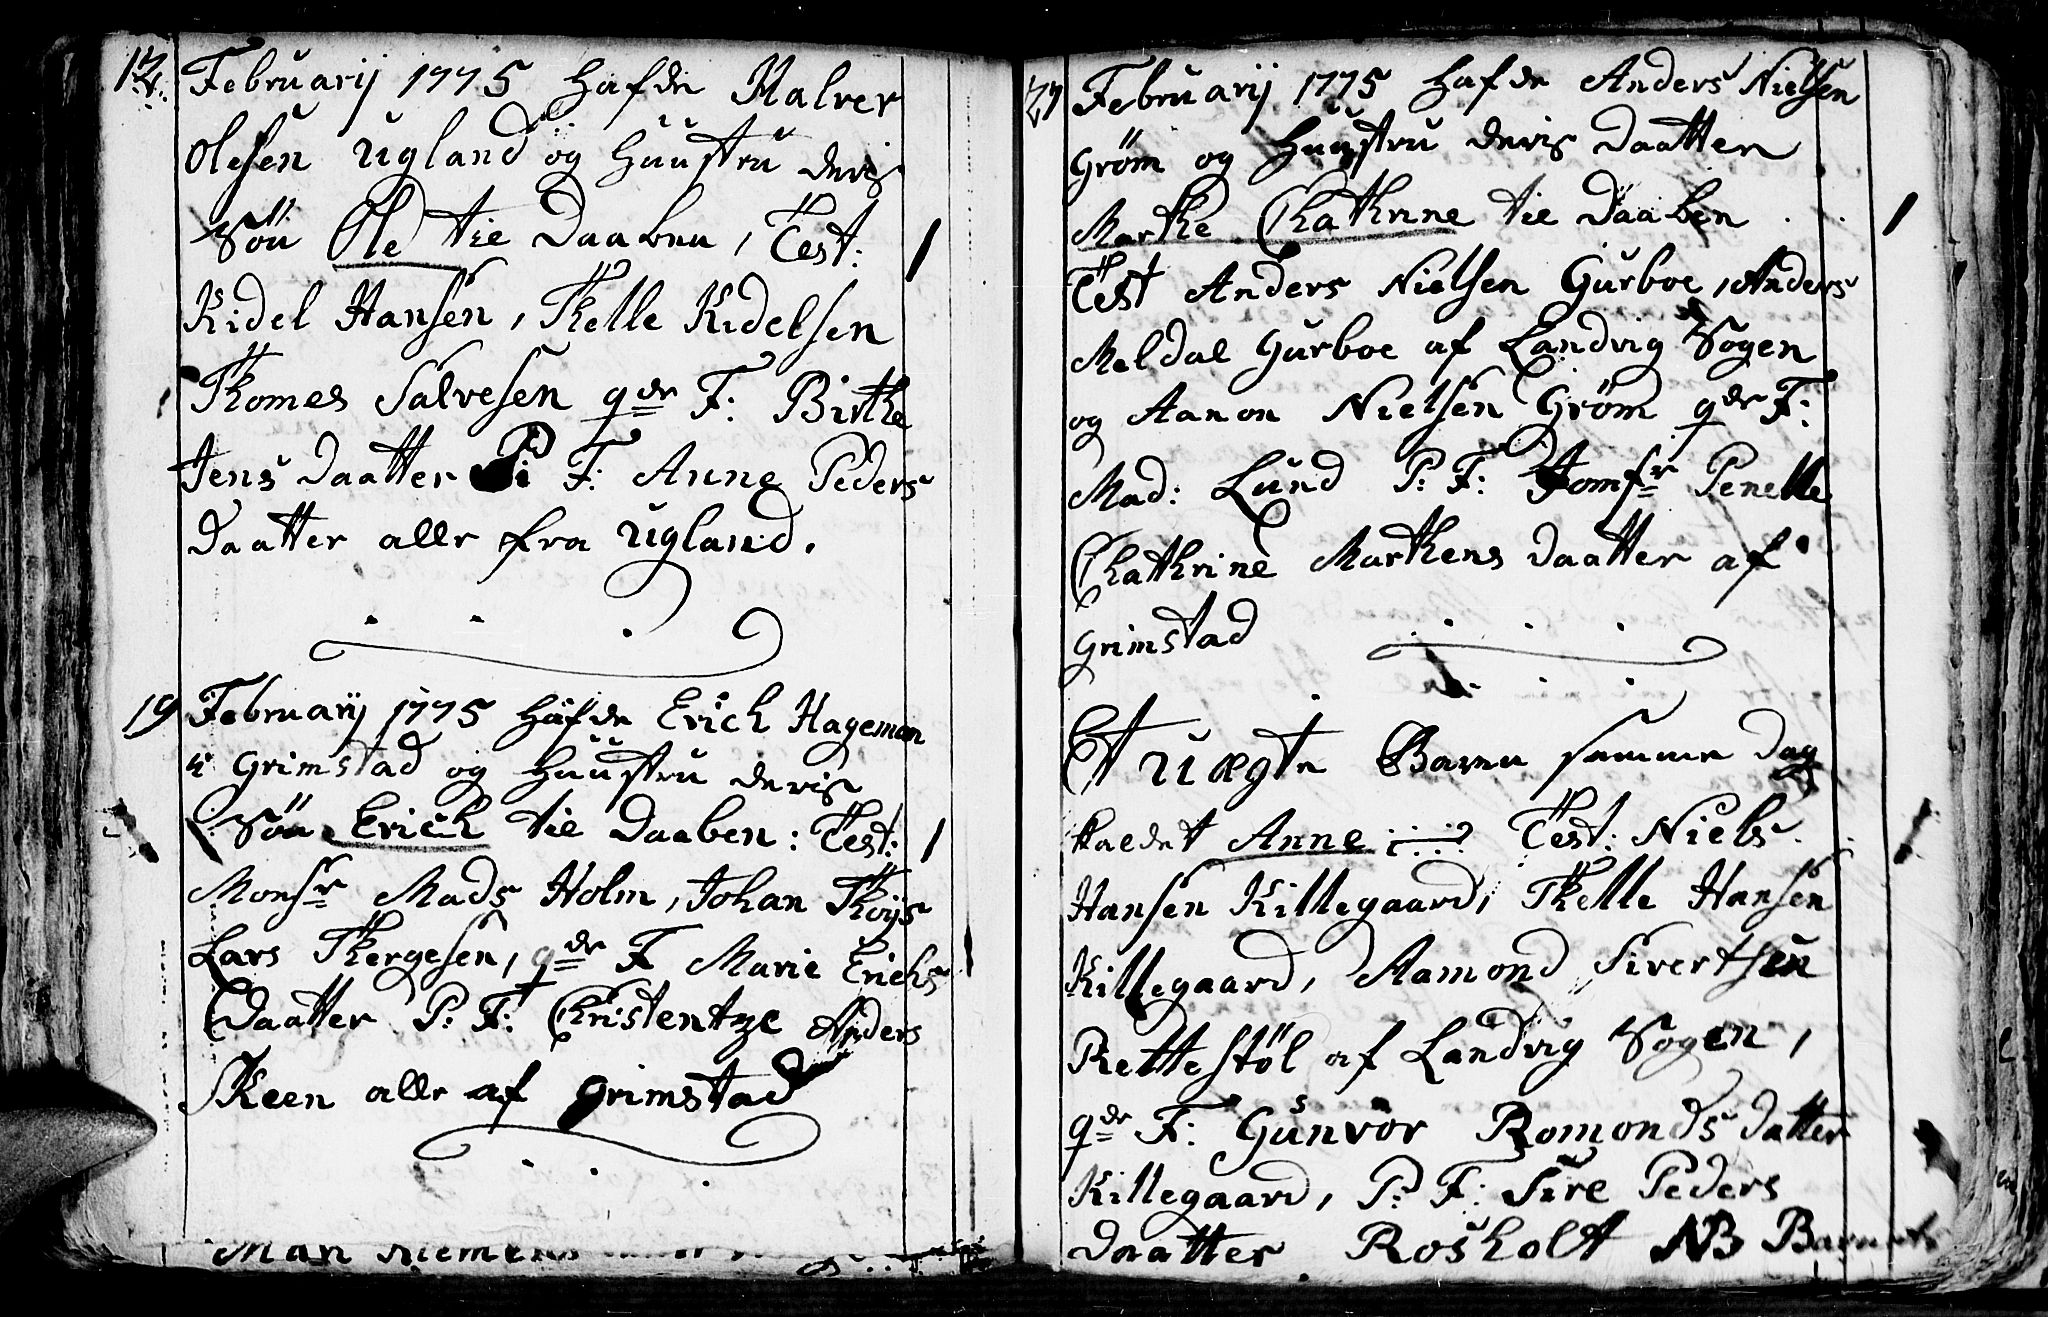 12. Februarij 1775 hafde Halver
Olesen Ugland og Huustru deris
Søn Ole til Daaben, Test:
Kidel Hansen, Thelle Kidelsen
Thomes Salvesen qde F: Birthe
Jens Daatter Pi F: Anne Peders
Daatter alle fra Ugland.
19 Februarij 1775 hafde Erich Hageman
i Grimstad og Huustru deris
Søn Erich til Daaben: Test:
Monsr Mads Holm, Johan Thoÿs
Lars Thergesen, qde F Marie Erichs
Daatter P: F: Christentze Anders
Skeen alle af Grimstad
Man Klemens
27 Februarij 1775 hafde Anders Nielsen
Grøm og Huustru deris Daatter
Marthe Chathrine til Daaben
Test Anders Nielsen Gurboe, Anders
Meldal Gurboe af Landvig Sogen
og Aanon Nielsen Grøm qde F:
Mad: Lund P: F: Jomfr Penelle
Chathrine Marthens Daatter af
Grimstad
Et Uægte Barn samme Dag
kaldet Anne Test: Niels
Hansen Killegaard, Thelle Hansen
Killegaard, Aamond Sivertsen
Rettestøl af Landvig Sogen,
qde F: Gunvor Romonds Datter
Killegaard, P: F: Sire Peders
Daatter Rosholt NB Barnets